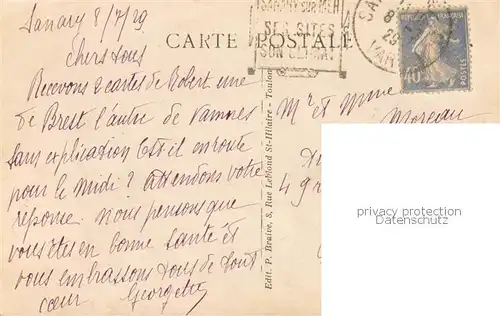 Sanary 8/7/29
CARTE POSTALE
SANARY SUR MER
SES SITES
SON CLIMAT
40
POSTES
Chers tous
Recevons 2 cartes de Robert une
de Brest l'autre de Vannes
sans explication Est-il en route
pour le midi ? attendons votre
reponse. nous pensons que
vous êtes en bonne santé et
vous embrassons tous de tout
cœur Georgette
Edit. P. Beaive, 8, Rue Leblond St-Hilaire - Toulon
Mr et Mme
Moreau
49
privacy protection